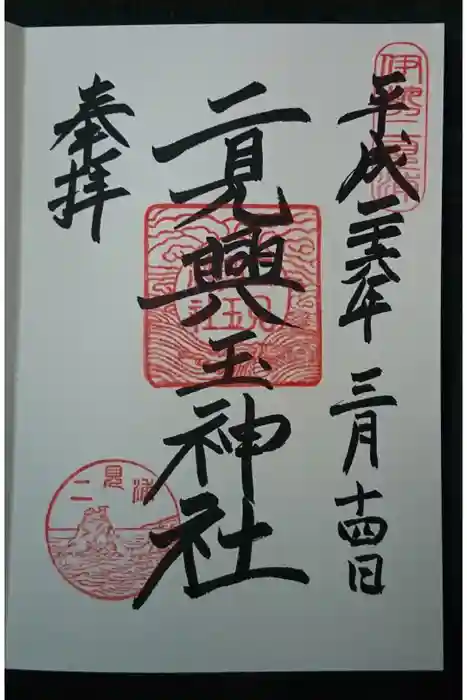 平成二十六年 三月十四日
伊勢二見浦
二見興玉神社
奉拝
二見浦